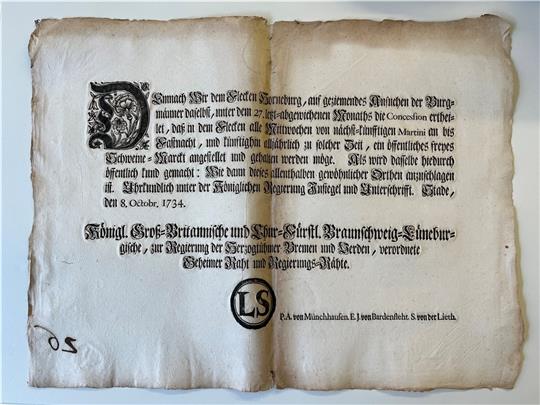 DEmnach Wir dem Flecken Horneburg, auf geziemendes Ansuchen der Burg-
männer daselbst, unter dem 27. letzt-abgewichenen Monaths die Concession erthei-
let, daß in dem Flecken alle Mittwochen von nächst-künfftigen Martini an bis
Fastnacht, und künfftighin alljährlich zu solcher Zeit, ein öffentliches freyes
Schweine-Marckt angestellet und gehalten werden möge. Als wird dasselbe hiedurch
öffentlich kund gemacht: Wie dann dieses allenthalben gewöhnlicher Orthen anzuschlagen
ist. Uhrkundlich unter der Königlichen Regierung Insiegel und Unterschrifft. Stade,
den 8. Octobr. 1734.
Königl. Groß-Britannische und Chur-Fürstl. Braunschweig-Lünebur-
gische, zur Regierung der Hertzogthümer Bremen und Verden, verordnete
Geheimer Raht und Regierungs-Räthe.
LS
P. A. von Münchhausen. E. J. von Bardenfleht. S. von der Lieth.